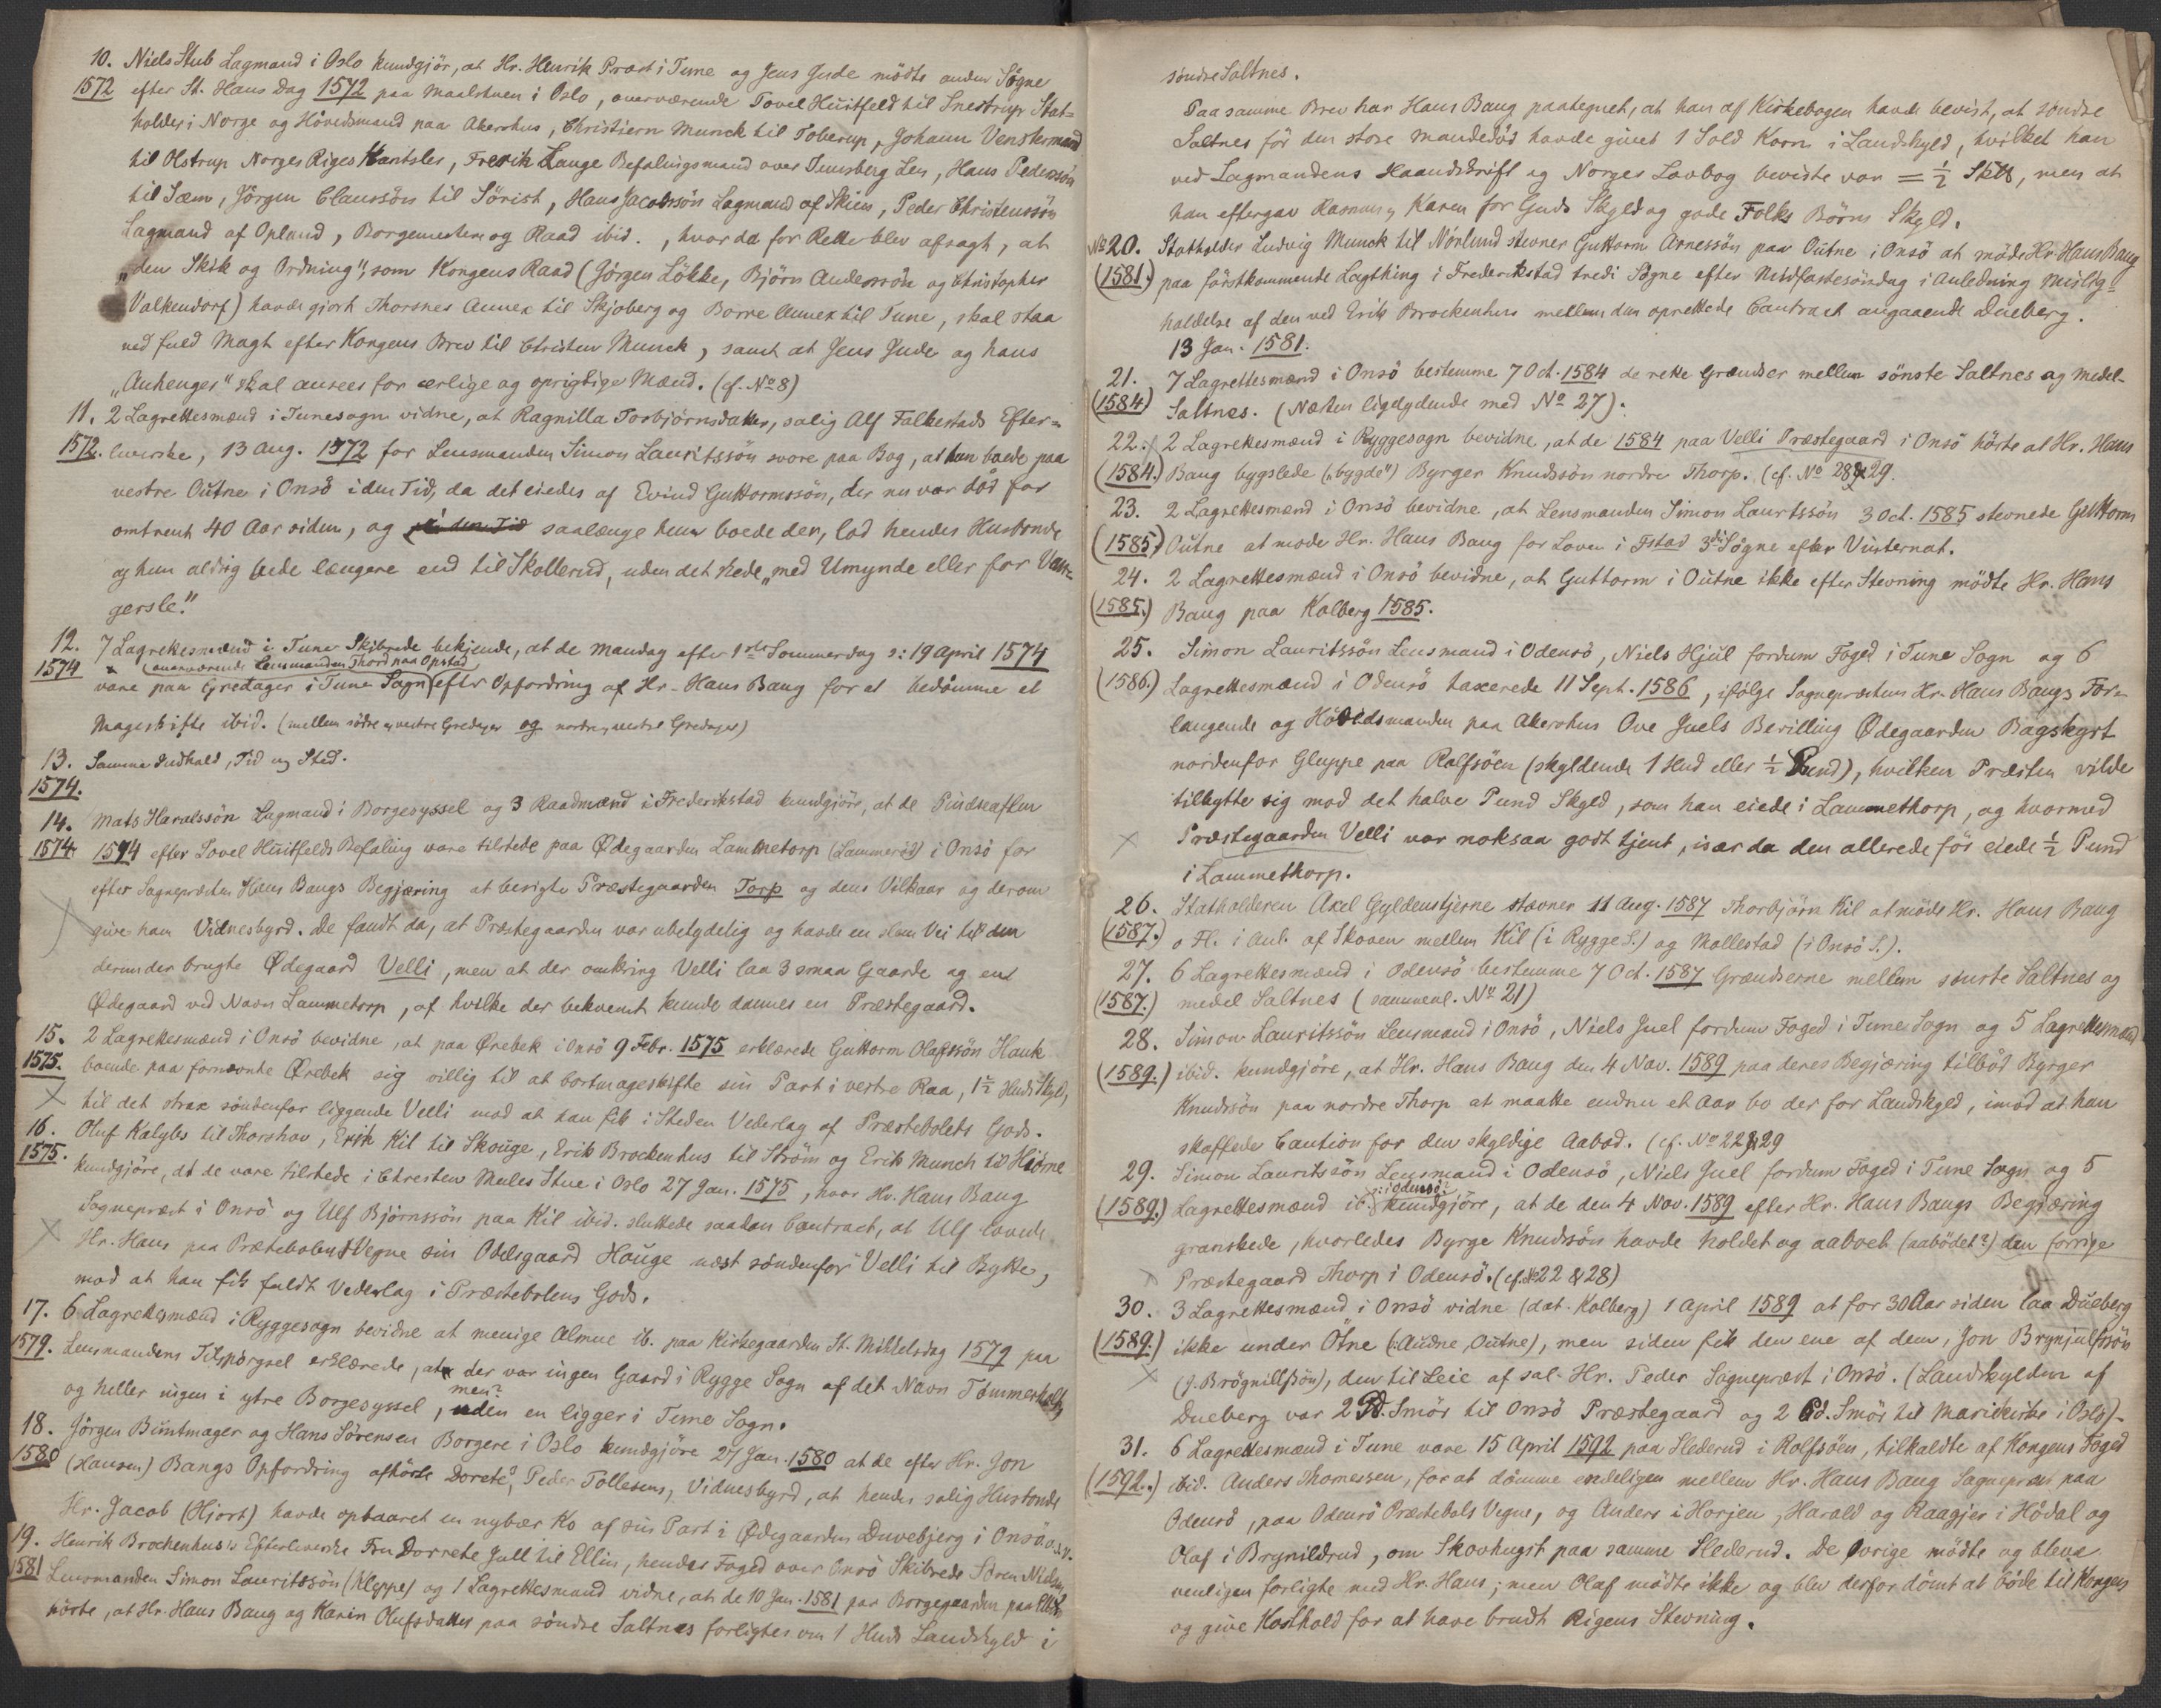 10. Niels Stub Lagmand i Oslo kundgjör, at Hr. Henrik Præst i Tune og Jens Jude mödte anden Sögne
1572 efter St. Hans Dag 1572 paa Maalstuen i Oslo, overværende Povel Huitfeld til Snestrup Stat=
holder i Norge og Höwedsmand paa Akershus, Christiern Munck til Toberup, Johann Venstermand
til Olstrup Norges Riges Kantsler, Frerik Lange Befalingsmand over Tunsberg Len, Hans Pederssön
til Sæm, Jörgen Claussön til Sörist, Hans Jacobssön Lagmand af Skien, Peder Christenssön
Lagmand af Opland, Borgemestere og Raad ibid., hvor da for Rette blev afsagt, at
"den Skik og Ordning", som Kongens Raad (Jörgen Lökke, Björn Anderssön og Christopher
Valkendorf) havde gjort Thorsnes Annex til Skjeberg og Borre Annex til Tune, skal staa
ved fuld Magt efter Kongens Brev til Christen Munck, samt at Jens Jude og hans
"Anhenger" skal ansees for ærlige og oprigtige Mænd. (cf. No 8)
11. 2 Lagrettesmænd i Tunesogn vidne, at Ragnilla Torbjörnsdatter, salig Alf Falkestads Efter=
1572. leverske, 13 Aug. 1572 for Lensmanden Simon Lauritssön svore paa Bog, at hun boede paa
vestre Oŭtne i Onsö i den Tid, da det eiedes af Evind Guttormssön, der nu var död for
omtrent 40 Aar siden, og i den Tid saalænge hun boede der, lod hendes Husbonde
og hun aldrig lede længere end til Skollerud, uden det skede "med Umynde eller for Van=
gersle."
12. 7 Lagrettesmænd i Tune Skibrede bekjende, at de Mandag efter 1ste Sommerdag ɔ: 19 April 1574
1574 (overværende Lensmanden Thord paa Opstad)
vare paa Gredager i Tune Sogn efter Opfordring af Hr. Hans Baug for at bedömme et
Mageskifte ibid. (mellem södre og vestre Gredager og nordre, vestre Gredager)
13. Samme Indhold, Tid og Sted.
1574.
14. Mats Haralssön Lagmand i Borgesyssel og 3 Raadmænd i Frederikstad kundgjöre, at de Pindseaften
1574. 1574 efter Povel Huitfelds Befaling vare tilstede paa Ødegaarden Lammetorp (Lammeröd) i Onsö for
efter Sognepresten Hans Baugs Begjæring at besigte Præstegaarden Torp og dens Vilkaar og derom
give ham Vidnesbyrd. De fandt da, at Præstegaarden var ubetydelig og havde en slem Vei til den
derunder brugte Ødegaard Velli, men at der omkring Velli laa 3 smaa Gaarde og en
Ødegaard ved Navn Lammetorp, af hvilke der bekvemt kunde dannes en Præstegaard.
15. 2 Lagrettesmænd i Onsö bevidne, at paa Ørebek i Onsö 9 Febr. 1575 erklærede Guttorm Olafssön Hauk
1575. boende paa fornævnte Ørebek sig villig til at bortmageskifte sin Part i vestre Raa, 1½ Huds Skyld,
til det strax söndenfor liggende Velli mod at han fik i Steden Vederlag af Præstebolets Gods.
16. Oluf Kalyps til Thorshov, Erik Kil til Skouge, Erik Brockenhus til Ström og Erik Munch til Hiörne
1575. kundgjöre, at de vare tilstede i Chresten Mules Stue i Oslo 27 Jan. 1575, hvor Hr. Hans Baug
Sognepræst i Onsö og Ulf Björnssön paa Kil ibid. sluttede saadan Contract, at Ulf lovede
Hr. Hans paa Præstebolens Vegne sin Odelsgaard Hauge næst söndenfor Velli til Bytte,
mod at han fik fuldt Vederlag i Præstebolens Gods.
17. 6 Lagrettesmænd i Ryggesogn bevidne at menige Almue ib. paa Kirkegaarden St. Mikkelsdag 1579 paa
1579. Lensmandens Tilspörgsel erklærede, at der var ingen Gaard i Rygge Sogn af det Navn Tömmerholt,
og heller ingen i ytre Borgesyssel, men? uden en ligger i Tune Sogn.
18. Jörgen Buntmager og Hans Sörensen Borgere i Oslo kundgjöre 27 Jan. 1580 at de efter Hr. Jon
1580 (Hansen) Bangs Opfordring afhörte Dorete, Peder Tollesens, Vidnesbyrd, at hendes salig Husbonde
Hr. Jacob (Hjort) havde opbaaret en nybær Ko af sin Part i Ødegaarden Duvebjerg i Onsö o.s.v.
19. Henrik Brochenhus's Efterleverske Fru Dorrete Jull til Ellin, hendes Foged over Onsö Skibrede Sören Nielsen,
1581 Lensmanden Simon Lauritssön (Kleppe) og 1 Lagrettesmand vidne, at de 10 Jan. 1581 paa Borgegaarden paa Ellin
hörte, at Hr. Hans Baug og Karin Olufsdatter paa söndre Saltnes forligtes om 1 Huds Landskyld i
söndre Saltnes.
Paa samme Brev har Hans Baug paategnet, at han af Kirkebogen havde bevist, at söndre
Saltnes för den store Mandedöd havde givet 1 Sold Korn i Landskyld, hvilket han
ved Lagmandens Haandskrift og Norges Lovbog beviste var = ½ Skb, men at
han eftergav Rasmus og Karen for Guds Skyld og gode Folks Börns Skyld.
No 20. Statholder Ludvig Munck til Nörlund stevner Guttorm Arnessön paa Oŭtne i Onsö at möde Hr. Hans Baug
(1581.) paa förstkommende Lagthing i Frederikstad tredi Sögne efter Midfastesöndag i Anledning Mislig=
holdelse af den ved Erik Brockenhus mellem dem oprettede Contract angaaende Dueberg.
13 Jan. 1581.
21. 7 Lagrettesmænd i Onsö bestemme 7 Oct. 1584 de rette Grændser mellem sönste Saltnes og Medel-
(1584) Saltnes. (Næsten ligelydende med No 27).
22. 2 Lagrettesmænd i Ryggesogn bevidne, at de 1584 paa Velli Præstegaard i Onsö hörte at Hr. Hans
(1584.) Baug bygslede ("bygde") Byrger Knudssön nordre Thorp. (cf. No 28 & 29.
23. 2 Lagrettesmænd i Onsö bevidne, at Lensmanden Simon Laurtssön 3 Oct. 1585 stevnede Guttorm
(1585) Oŭtne at mode Hr. Hans Baug for Loven i Fstad 3di Sögne efter Vinternat.
24. 2 Lagrettesmænd i Onsö bevidne, at Guttorm i Oŭtne ikke efter Stevning mödte Hr. Hans
(1585.) Baug paa Kolberg 1585.
25. Simon Lauritssön Lensmand i Odensö, Niels Hjul fordum Foged i Tune Sogn og 6
(1586.) Lagrettesmænd i Odensö taxerede 11 Sept. 1586, ifölge Sognepræsten Hr. Hans Baugs For-
langende og Hövedsmanden paa Akershus Ove Juels Bevilling Ødegaarden Bagskyrt
nordenfor Gluppe paa Rolfsöen (skyldende 1 Hud eller ½ Pund), hvilken Præsten vilde
tilbytte sig mod det halve Pund Skyld, som han eiede i Lammethorp, og hvormed
Præstegaarden Velli var noksaa godt tjent, især da den allerede för eiede ½ Pund
i Lammethorp.
26. Statholderen Axel Gyldenstjerne stævner 11 Aug. 1587 Thorbjörn Kil at möde Hr. Hans Baug
(1587.) o Fl. i Anl. af Skoven mellem Kil (i Rygge S.) og Mollestad (i Onsö S.).
27. 6 Lagrettesmænd i Odensö bestemme 7 Oct. 1587 Grændserne mellem sönste Saltnes og
(1587.) medel Saltnes (sammenl. No 21)
28. Simon Lauritssön Lensmand i Onsö, Niels Juel fordum Foged i Tune Sogn og 5 Lagrettesmænd
(1589.) ibid. kundgjöre, at Hr. Hans Baug den 4 Nov. 1589 paa deres Begjæring tilböd Byrger
Knudssön paa nordre Thorp at maatte endnu et Aar bo der for Landskyld, imod at han
skaffede Caution for den skyldige Aabod. (cf. No 22 & 29
29. Simon Lauritssön Lensmand i Odensö, Niels Juel fordum Foged i Tune Sogn og 5
(1589.) Lagrettesmænd ib. (ɔ: i Odensö) kundgjöre, at de den 4 Nov. 1589 efter Hr. Hans Baugs Begjæring
granskede, hvorledes Byrge Knudssön havde holdet og aaboet (aabödet?) den forrige
Præstegaard Thorp i Odensö. (cf. No 22 & 28)
30. 3 Lagrettesmænd i Onsö vidne (dat. Kolberg) 1 April 1589 at for 30 Aar siden laa Dueberg
(1589.) ikke under Ötne (: Audne, Oŭtne), men siden fik den ene af dem, Jon Brynjulfssön
(j. Brögnillssön), den til Leie af sal. Hr. Peder Sognepræst i Onsö. (Landskylden af
Dueberg var 2 Pd. Smör til Onsö Præstegaard og 2 Pd. Smör til Mariekirke i Oslo)-
31. 6 Lagrettesmænd i Tune vare 15 April 1592 paa Slederud i Rolfsöen, tilkaldte af Kongens Foged
(1592.) ibid. Anders Thomessen, for at dömme endeligen mellem Hr. Hans Baug Sognepræst paa
Odensö, paa Odensö Præstebols Vegne, og Anders i Horjen, Harald og Raagjer i Hödal og
Olaf i Brynildrud, om Skovhugst paa samme Slederud. De Øvrige mödte og bleve
venligen forligte med Hr. Hans; men Olaf mödte ikke og blev derfor dömt at böde til Kongen
og give Kosthold for at have brudt Rigens Stevning.